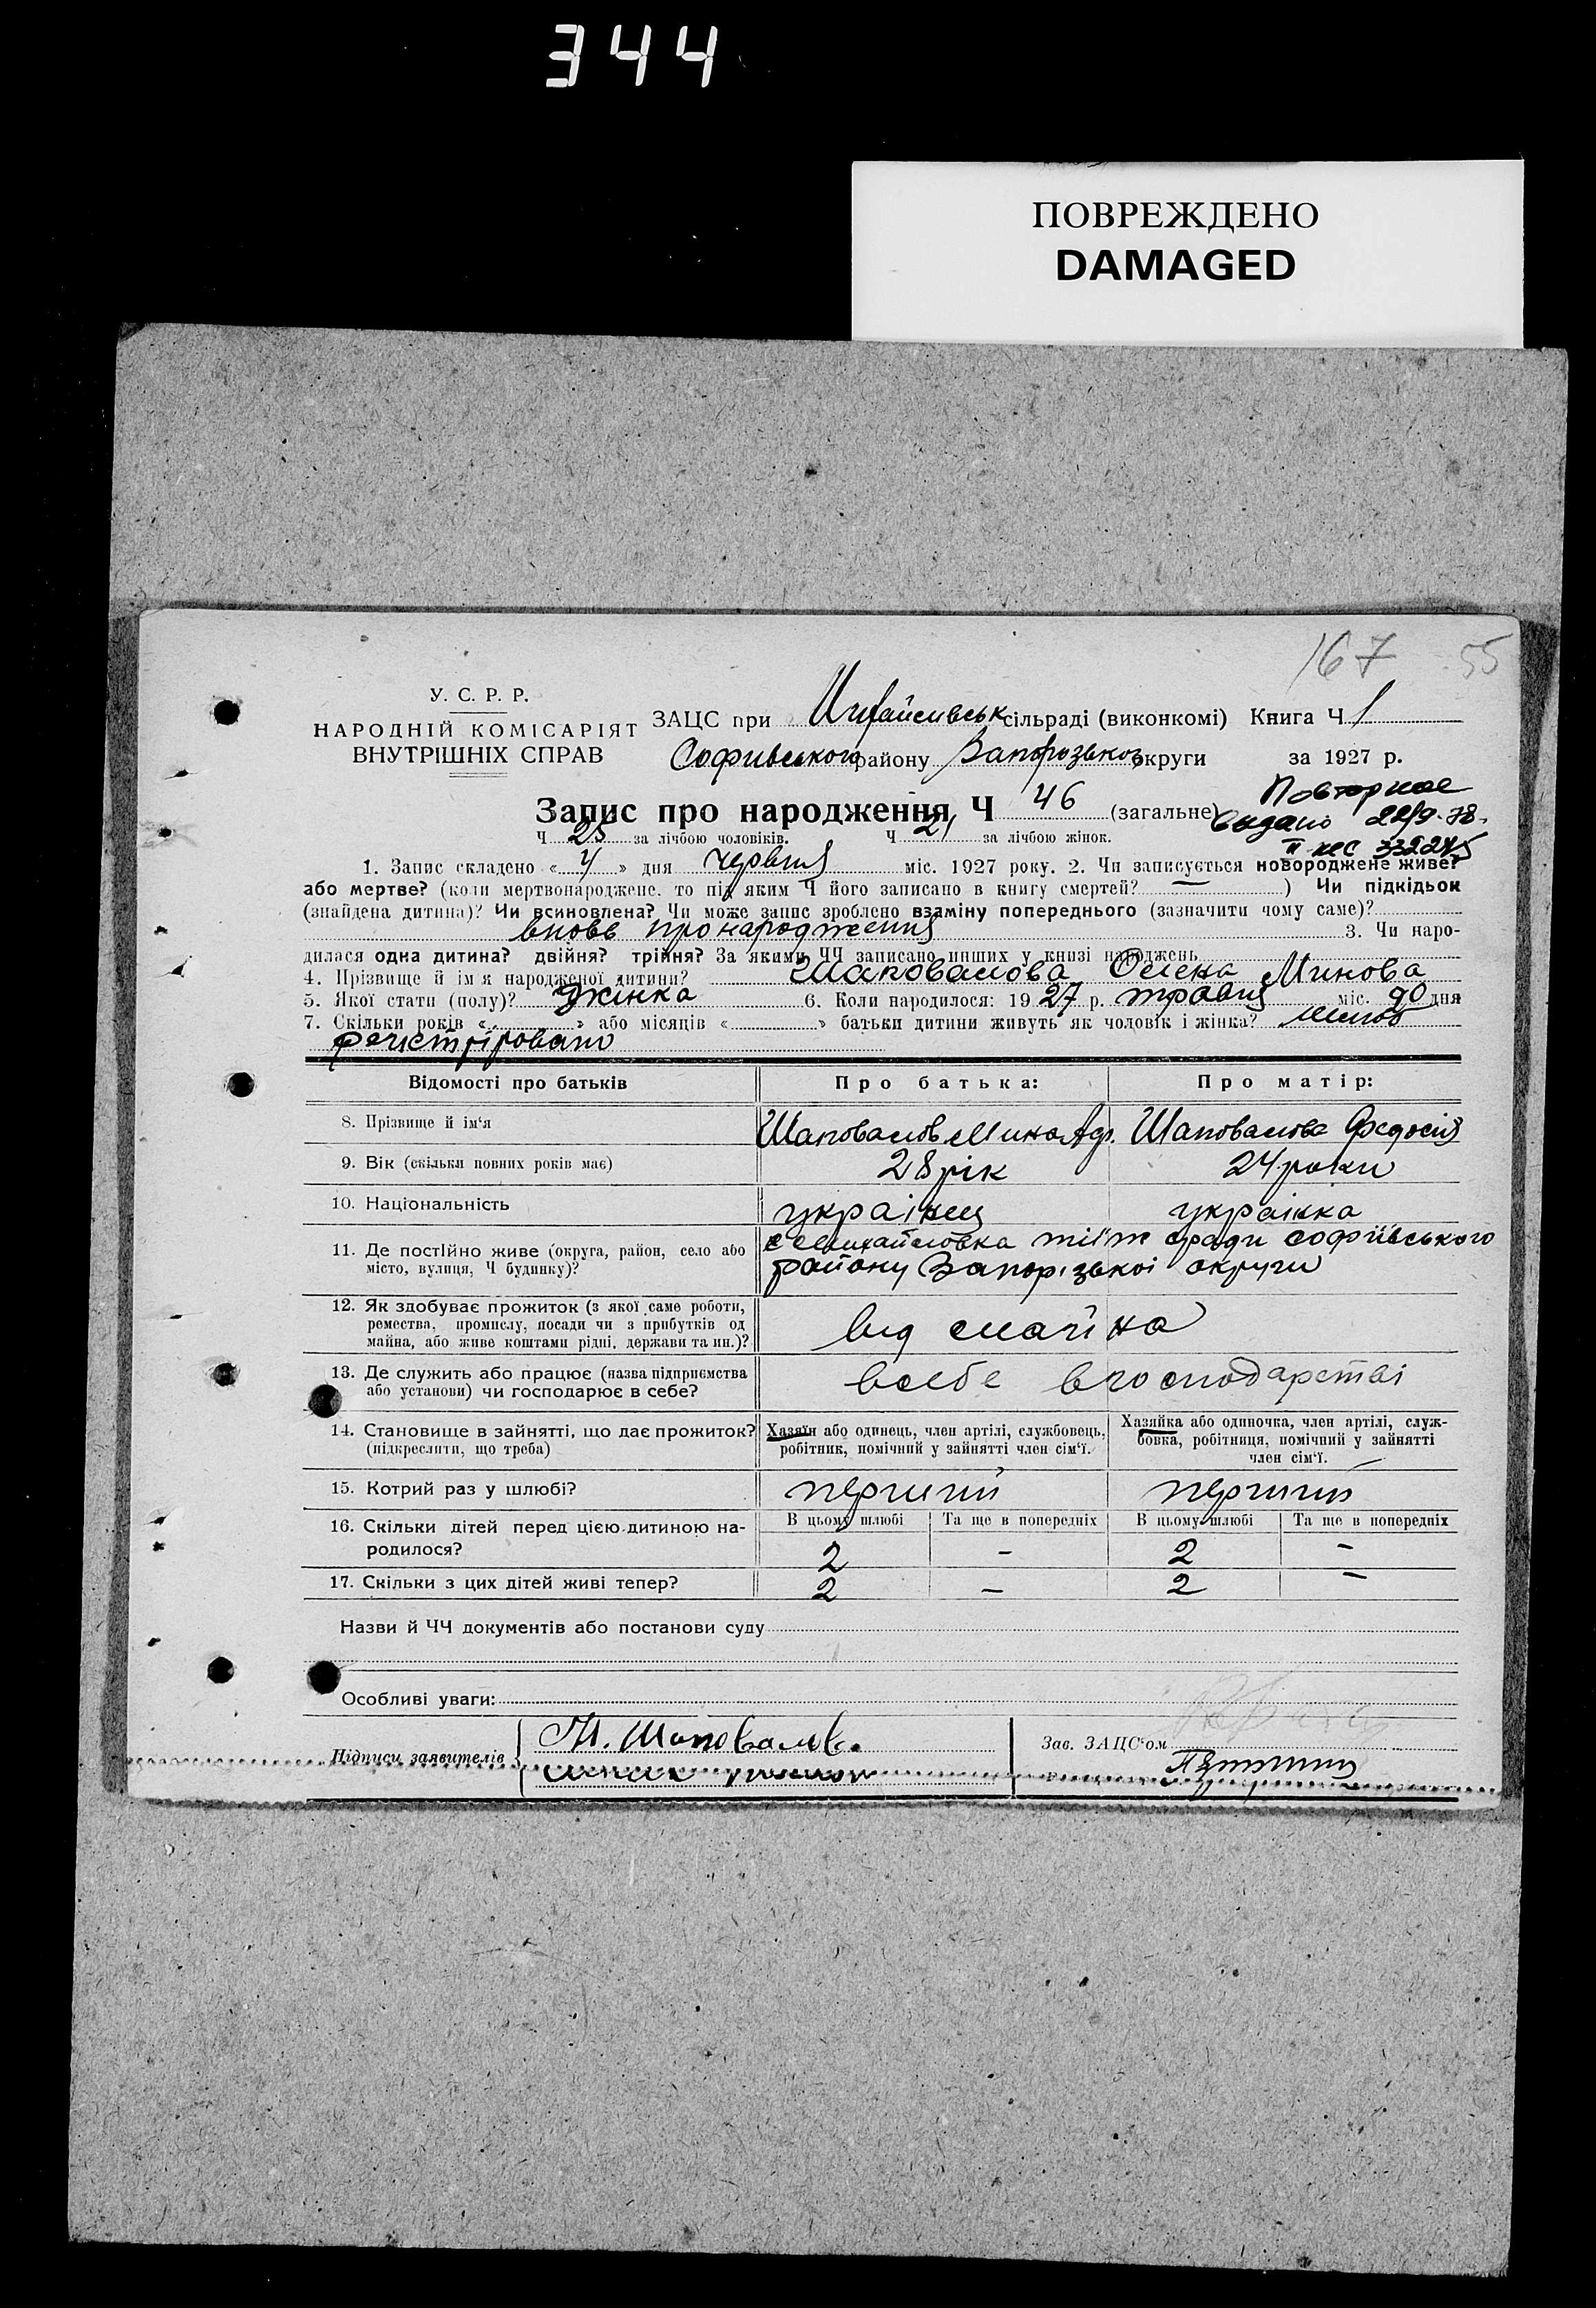 344
ПОВРЕЖДЕНО
DAMAGED
167 55
У. С. Р. Р.
НАРОДНІЙ КОМІСАРІЯТ
ВНУТРІШНІХ СПРАВ
ЗАЦС при сільраді (виконкомі) Книга Ч 1
Софивського району Запорозької округи за 1927 р.
Запис про народження Ч 46 (загальне)
Повторное
видано 22/9-78.
332275
Ч 25 за лічбою чоловіків. Ч 21 за лічбою жінок.
1. Запис складено « 4 » дня червня міс. 1927 року. 2. Чи записується новороджене живе?
або мертве? (коли мертвонароджене, то під яким Ч його записано в книгу смертей? — ) Чи підкідьок
(знайдена дитина)? Чи всиновлена? Чи може запис зроблено взаміну попереднього (зазначити чому саме)?
вновь про народження 3. Чи наро-
дилася одна дитина? двійня? трійня? За якими ЧЧ записано инших у книзі народжень
4. Прізвище й ім'я народженої дитини? Шаповалова Олена Минова
5. Якої стати (полу)? Жінка 6. Коли народилося: 1927 р. травня міс. 90 дня
7. Скільки років « » або місяців « » батьки дитини живуть як чоловік і жінка? шлюб
регістріровано
Відомості про батьків
Про батька:
Про матір:
8. Прізвище й ім'я
Шаповалов Мина Адр.
Шаповалова Федосія
9. Вік (скільки повних років має)
28 рік
24 роки
10. Національність
українец
українка
11. Де постійно живе (округа, район, село або
місто, вулиця, Ч будинку)?
с Михайловка тіїж сради софіївського
району Запорізької округи
12. Як здобуває прожиток (з якої саме роботи,
ремества, промислу, посади чи з прибутків од
майна, або живе коштами рідні, держави та ин.)?
від майна
13. Де служить або працює (назва підприємства
або установи) чи господарює в себе?
всебе вгосподарстві
14. Становище в зайнятті, що дає прожиток?
(підкреслити, що треба)
Хазяїн або одинець, член артілі, службовець,
робітник, помічний у зайнятті член сім'ї.
Хазяйка або одиночка, член артілі, служ-
бовка, робітниця, помічний у зайнятті
член сім'ї.
15. Котрий раз у шлюбі?
перший
перший
16. Скільки дітей перед цією дитиною на-
родилося?
В цьому шлюбі Та ще в попередніх В цьому шлюбі Та ще в попередніх
2 – 2 –
17. Скільки з цих дітей живі тепер?
2 – 2 –
Назви й ЧЧ документів або постанови суду
Особливі уваги:
Підписи заявителів
М. Шаповалов.
Зав. ЗАЦС'ом